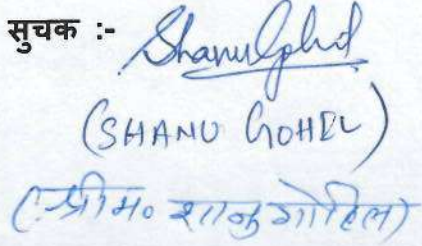 सुचक :- Shanu Gohel
(SHANU GOHEL)
(श्रीम० शानु गोहिल)